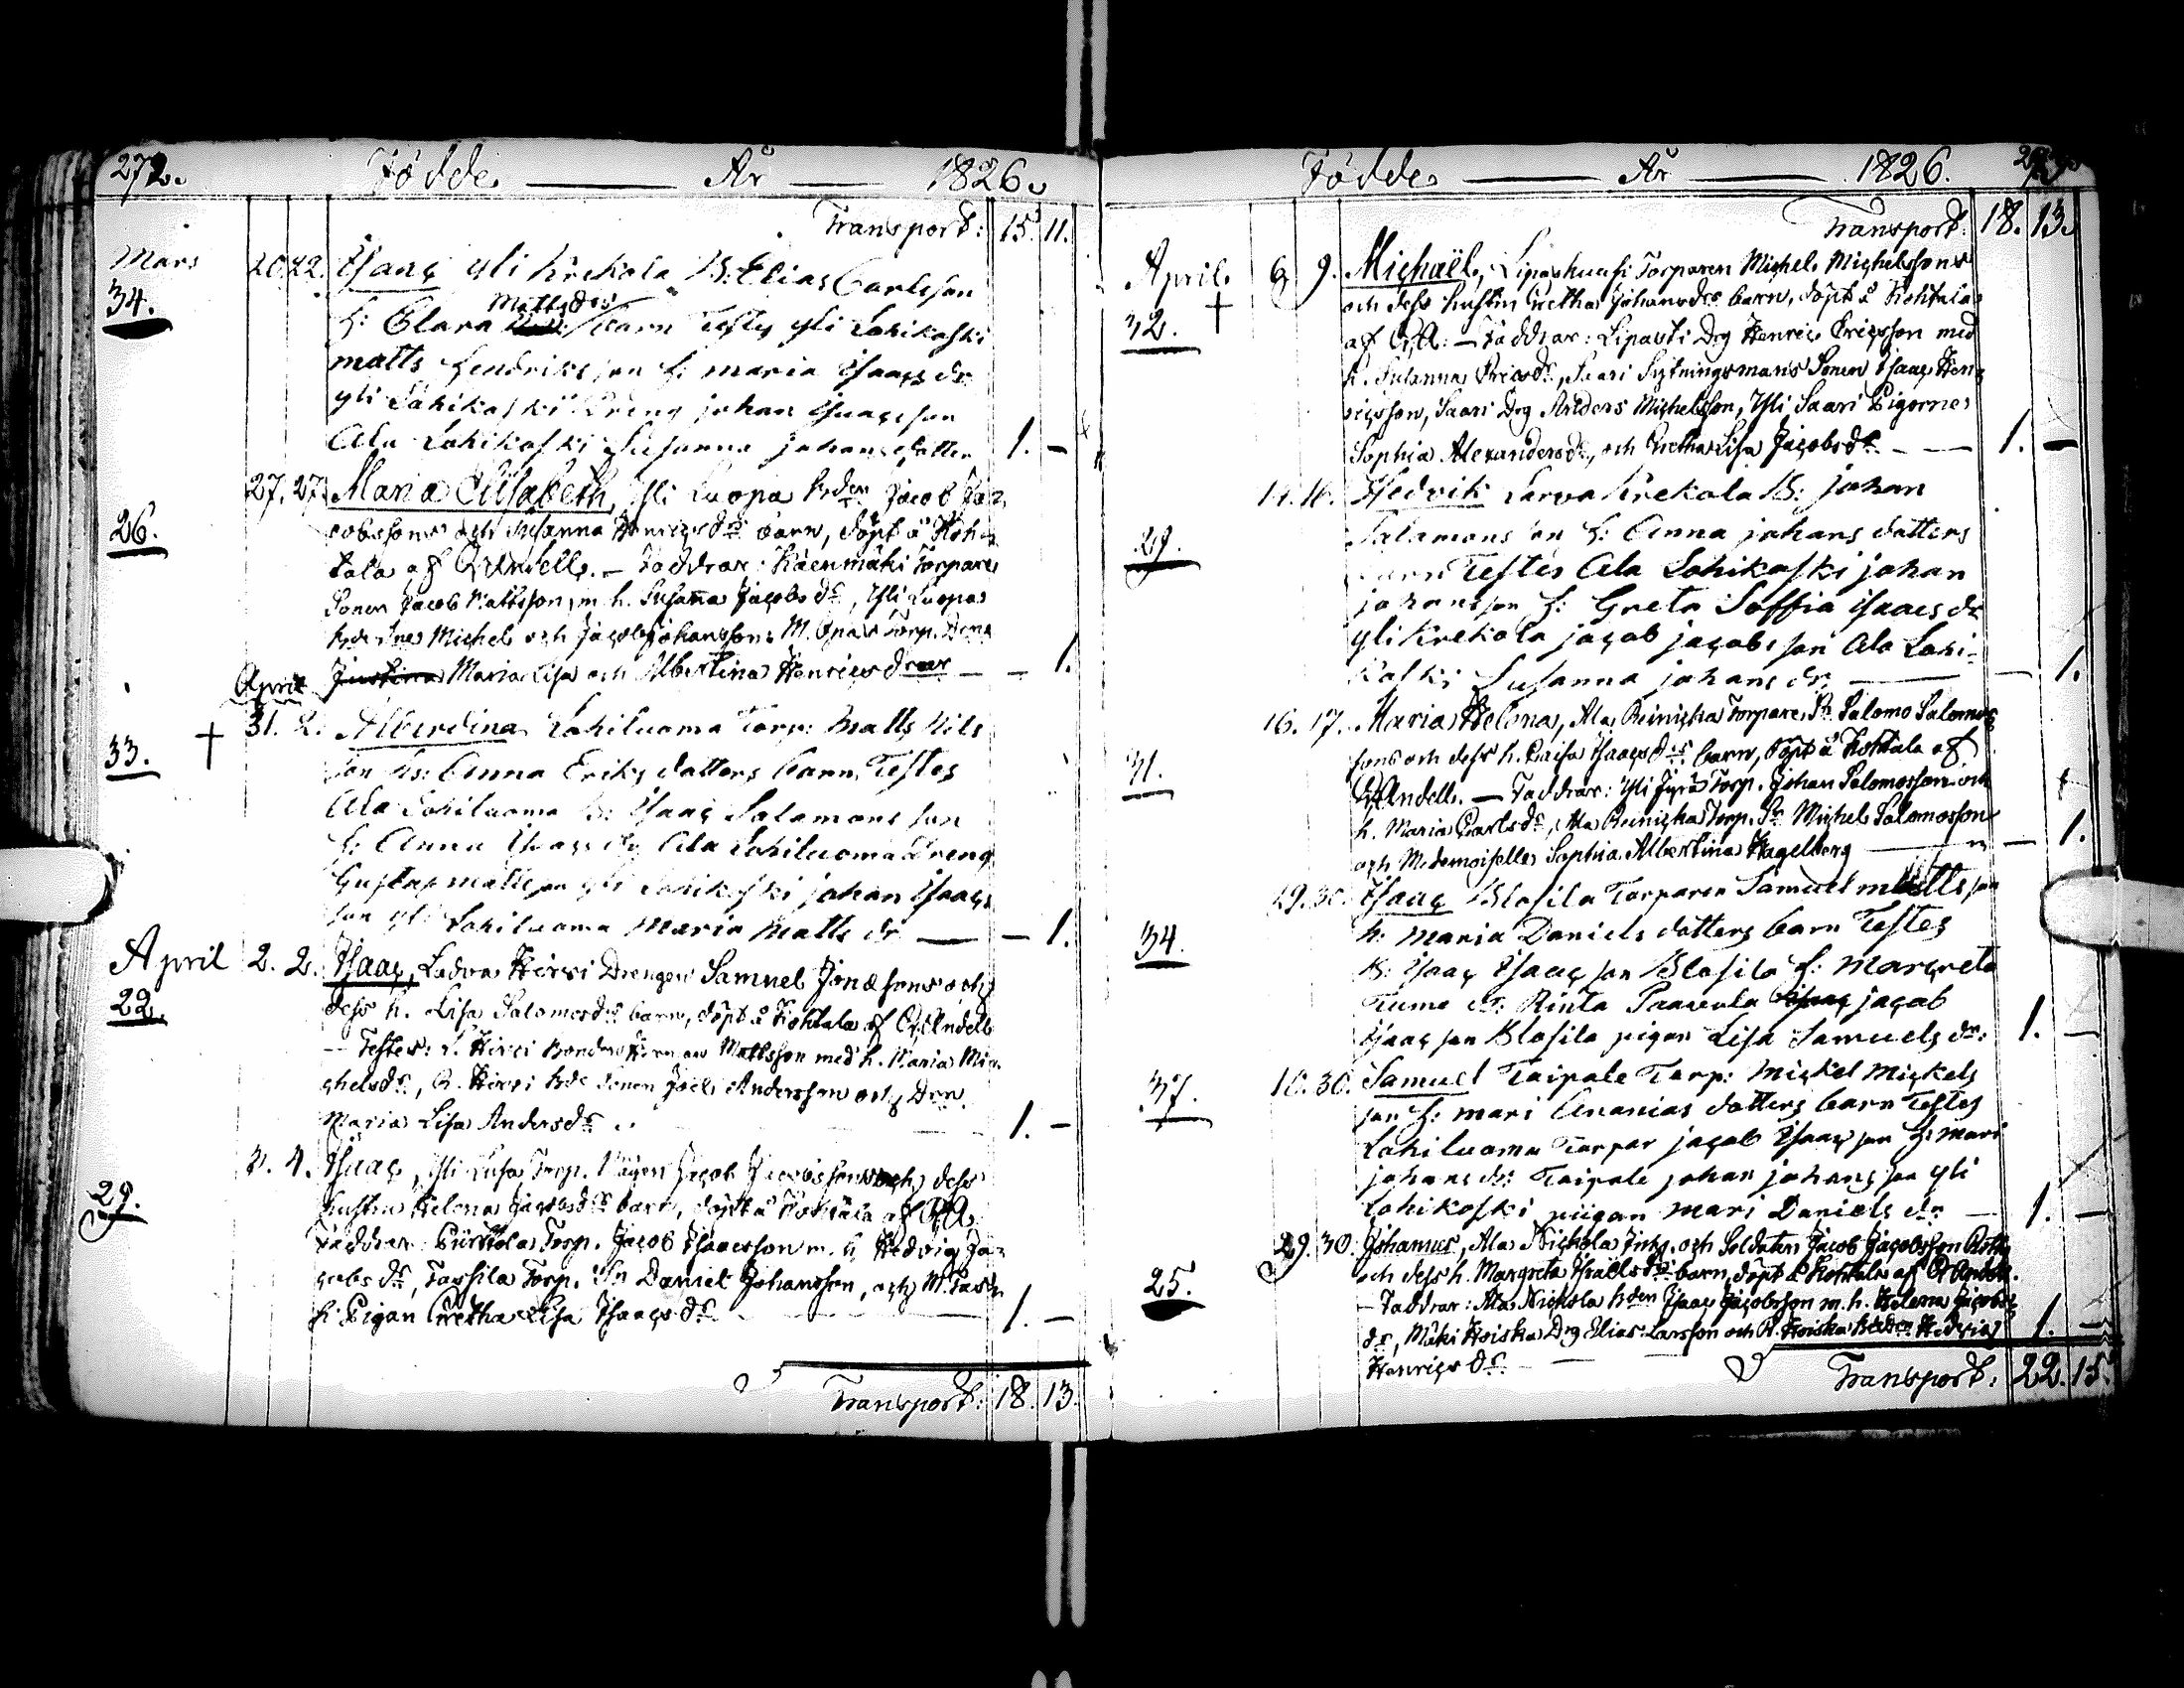 272.
Födde År 1826.
Transport: 15. 11.
Mars 20. 22. Isaac yli Krekola B: Elias Carlsson
34.
Mattsdr
h: Clara barn Testes yli Lohikoski
matts Hendriksson h: maria Isaacs dr
yli Lohikoski Dreng johan Isaacsson
Ala Lohikoski Susanna johans dotter 1. —
27. 27. Maria Elisabeth, Yli Luopa bden Jacob Ja=
26.
cobssons och Susanna Henricsdrs barn, döpt å Koh=
tala af Arndell. — Faddrar: Käenmäki Torpare
Sonen Jacob Mattsson, m. h. Susanna Jacobsdr, Yli Luopa
Michel och Jacob Johanssons M.
Justina Maria Lisa och Albertina Henricsdrar — — 1.
April
31. 2. Alberdina Lohiluoma Torp: Matts Nils
33. †
son hs: Anna Eriks dotters barn Testes
Ala Lohiluoma B: Isaac Salamons son
h: Anna Isaacs dr Ala Lohiluoma Dreng
Gustaf mattsson yli Lohikoski johan Isaacs
son yli Lohiluoma Maria Matts dr — — 1.
April 2. 2. Isaac, Ladva Hirvi Drengen Samuel Jonæsons och
22.
dess h. Lisa Salomosdrs barn, döpt å Kohtala af
— Testes: L. Hirvi Bonden Herman Mattsson med h. Maria Mi=
chelsdr, R. Hirvi bde Sonen Joel Andersson och Dren
Maria Lisa Andersdr 1. —
3. 4. Isaac, Yli Torp. Jacob Jacobssons och dess
29.
hustru Helena Jacobsdrs barn, döpt å Kohtala af
Faddrar: Torp. Jacob Isaacsson m. h. Hedvig Ja=
cobsdr, Tassila Torp. Sn Daniel Johansson, och
Pigan Gretha Lisa Isaacsdr 1. —
Transport: 18. 13.
Födde År 1826. 273.
Transport: 18. 13.
April 6 9. Michaël, Torparen Michel Michelssons
och dess hustru Gretha Johansdrs barn, döpt å Kohtala
32. †
af — Faddrar: Lipasti Drg Henric Ericsson med
h. Susanna Ericsdr, Saari Sytningsmans Sonen Isaac Hen=
ricsson, Saari Drg Anders Michelsson, Yli Saari Pigorne
Sophia Alexandersdr, och Gretha Lisa Jacobsdr — — 1. —
14. 16. Hedvik Larva Krekola B: johan
29.
Salamons son h: Anna johans dotters
barn Testes Ala Lohikoski johan
johansson h: Greta Soffia Isaacs dr
yli Krekola jacob jacobs son Ala Lohi=
koski Susanna johans dr. — — 1.
16. 17. Maria Helena, Ala Reinicka Torpare Sn Salomo Salomos=
31.
sons och dess h. Caisa Isaacsdrs barn, döpt å Kohtala af
Arndell. — Faddrar: Yli Jyrä Torp. Johan Salomosson och
h. Maria Carlsdr, Ala Reinicka Torp. Sn Michel Salomosson
och Mademoiselle Sophia Albertina Hagelberg — — 1.
29. 30. Isaac Blasila Torparen Samuel mattsson
34.
h: Maria Daniels dotters barn Testes
B: Isaac Isaacsson Blasila h: Margreta
Tume dr: Rinta Paavola jacob
Isaacsson Blasila pigan Lisa Samuels dr: 1. —
10. 30. Samuel Taipale Torp: Mickel Mickels
37.
son h: mari Ananias dotters barn Testes
Lohiluoma Torpar jacob Isaacsson h: Mari
johans dr: Taipale johan johansson yli
Lohikoski piigan mari Daniels dr — 1. —
29. 30. Johannes, Ala Nickola Inhg. och Soldaten Jacob Jacobsson
25.
och dess h. Margreta Israelsdrs barn, döpt å Kohtala af
— Faddrar: Ala Nickola bden Isaac Jacobsson m. h. Helena Jacobs
dr, Mäki Koiska Drg Elias Larsson och R. Koiska Hedvig 1. —
Henricsdr. —
Transport: 22. 15.